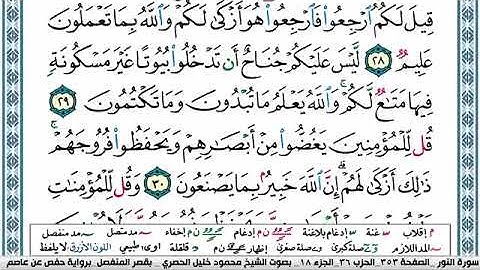 قِيلَ لَكُمُ ٱرْجِعُوا۟ فَٱرْجِعُوا۟ هُوَ أَزْكَىٰ لَكُمْ وَٱللَّهُ بِمَا تَعْمَلُونَ
عَلِيمٌ ٢٨ لَّيْسَ عَلَيْكُمْ جُنَاحٌ أَن تَدْخُلُوا۟ بُيُوتًا غَيْرَ مَسْكُونَةٍ
فِيهَا مَتَٰعٌ لَّكُمْ وَٱللَّهُ يَعْلَمُ مَا تُبْدُونَ وَمَا تَكْتُمُونَ ٢٩
قُل لِّلْمُؤْمِنِينَ يَغُضُّوا۟ مِنْ أَبْصَٰرِهِمْ وَيَحْفَظُوا۟ فُرُوجَهُمْ
ذَٰلِكَ أَزْكَىٰ لَهُمْ إِنَّ ٱللَّهَ خَبِيرٌۢ بِمَا يَصْنَعُونَ ٣٠ وَقُل لِّلْمُؤْمِنَٰتِ
إقلاب غنة إدغام بلاغنة إدغام إخفاء مد متصل مد منفصل
مد اللازم صلة كبرى وصلة صغرى إظهار قلقلة طبيعي اللون الأزرق لا يلفظ
سورة النور . الصفحة ٣٥٣ . الحزب ٣٦ . الجزء ١٨ . بصوت الشيخ محمود خليل الحصري . بقصر المنفصل برواية حفص عن عاصم